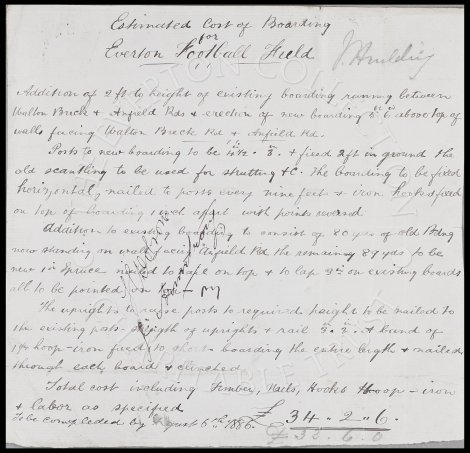 Estimated Cost of Boarding
for
Everton Football Field
Addition of 2 ft to height of existing boarding running between
Walton Breck & Anfield Rds & erection of new boarding 5" 6" above top of
walls facing Walton Breck Rd & Anfield Rd.
Posts to new boarding to be & fixed 2ft in ground the
old scantling to be used for strutting &c. The boarding to be fixed
horizontal, nailed to posts every nine feet & iron hooks fixed
on top of boarding 1 inch apart with points
Addition to existing boarding to consist of 80 yds of old Bdng
now standing on wall facing Anfield Rd the remaining 89 yds to be
new 1in Spruce nailed to on top & to lap 9in on existing boards
all to be pointed on
The uprights to raise posts to required height to be nailed to
the existing posts length of uprights & rail & a band of
hoop-iron fixed to boarding the entire length & nailed
through each board & clinched
Total cost including Timber, Nails, Hooks Hoop-iron
& labor as specified
To be completed by August 6th 1886. £ 34. 2. 6.
£ 32. 6. 0